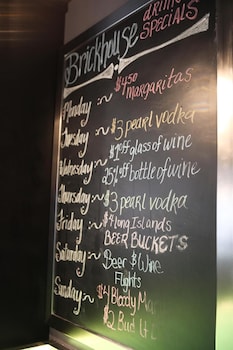 Brickhouse
DRINK
SPECIALS
Monday ~ $4.50
margaritas
Tuesday ~ $3 pearl vodka
Wednesday ~ $1 off glass of wine
25% off bottle of wine
Thursday ~ $3 pearl vodka
Friday ~ $4 long Islands
BEER BUCKETS
Saturday ~ Beer & Wine
Flights
Sunday ~ $4 Bloody
$2 Bud